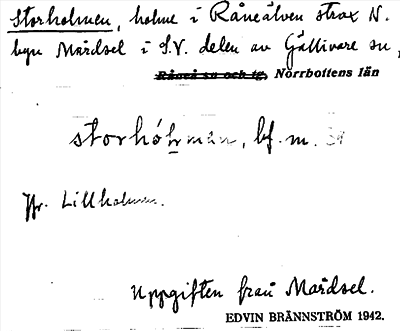 Storholmen, holme i Råneälven strax N.
byn Mårdsel i S.V. delen av Gällivare sn,
Råneå sn och tg, Norrbottens län
storhó̱ḷmen, bf. m.
Jfr. Lillholmen.
Uppgiften från Mårdsel.
EDVIN BRÄNNSTRÖM 1942.